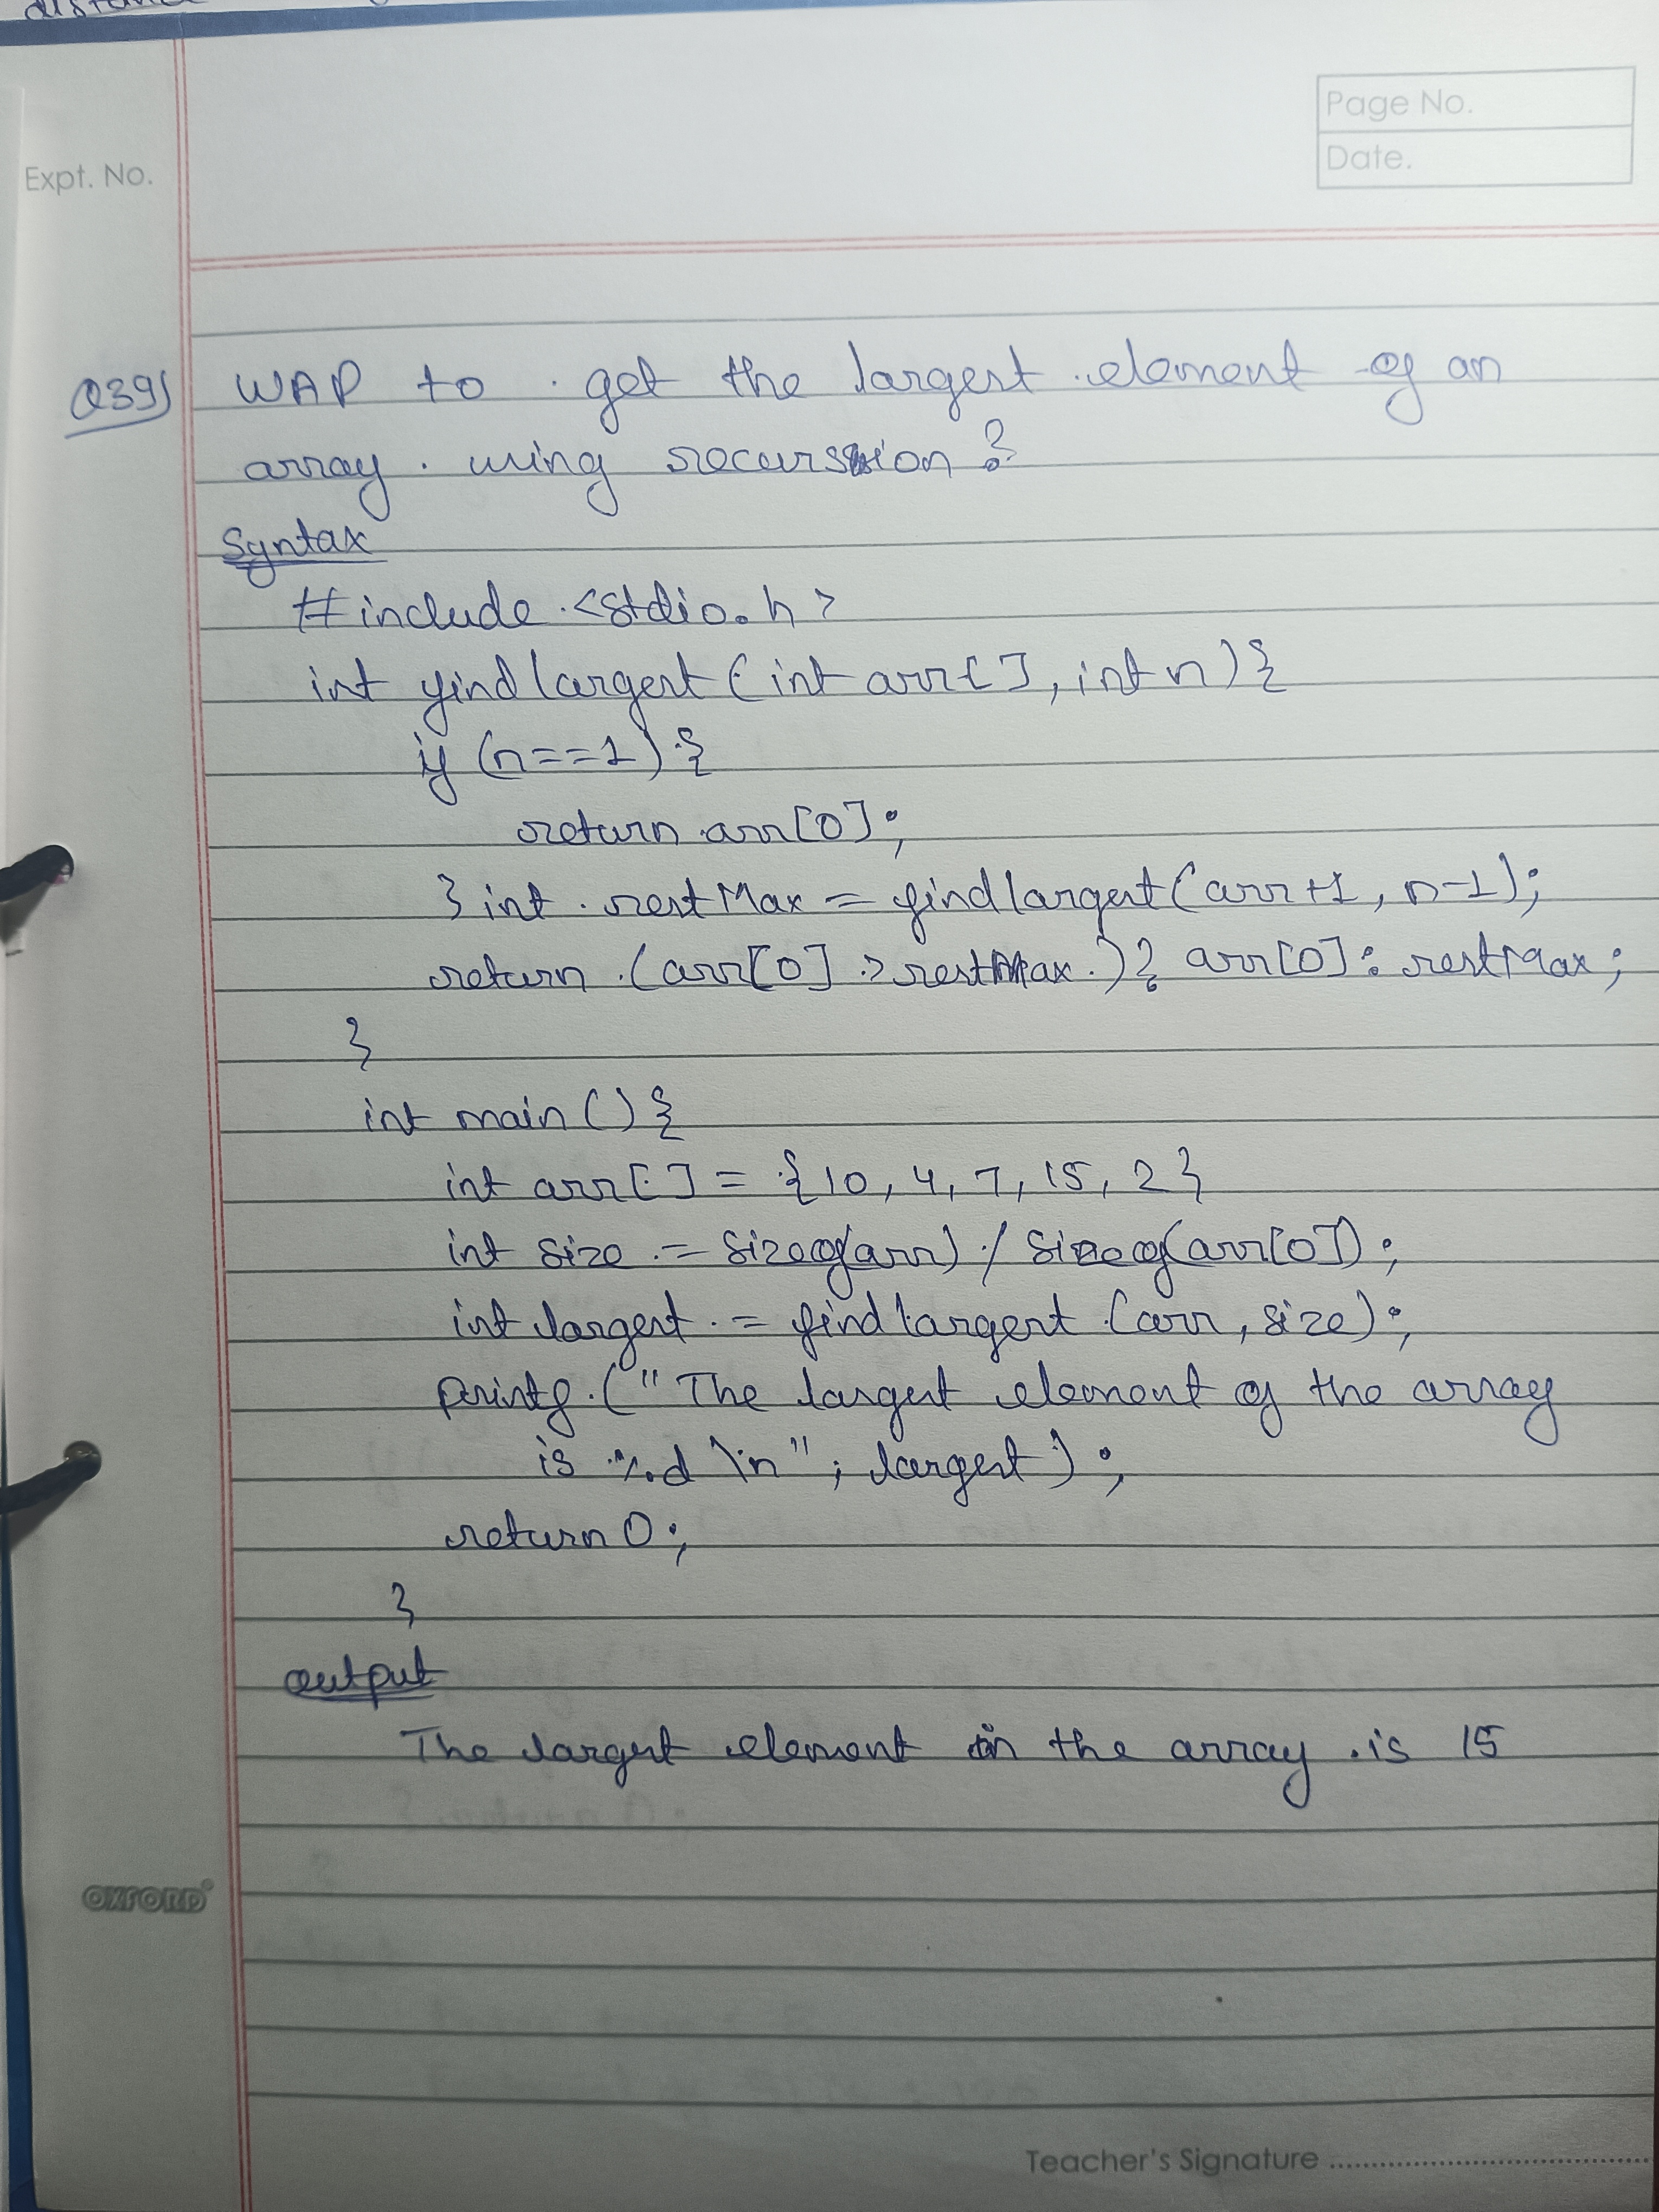 distance
Page No.
Date.
Expt. No.
Q39) WAP to get the largest element of an
array using recursion?
Syntax
#include <stdio.h>
int findlargest (int arr[], int n) {
if (n==1) {
return arr[0];
} int restMax = findlargest(arr+1, n-1);
return (arr[0] > restMax) ? arr[0] : restMax;
}
int main () {
int arr[] = {10, 4, 7, 15, 2}
int size = sizeof(arr) / sizeof(arr[0]);
int largest = findlargest (arr, size);
printf ("The largest element of the array
is %d \n" ; largest) ;
return 0;
}
output
The largest element in the array is 15
OXFORD
Teacher's Signature